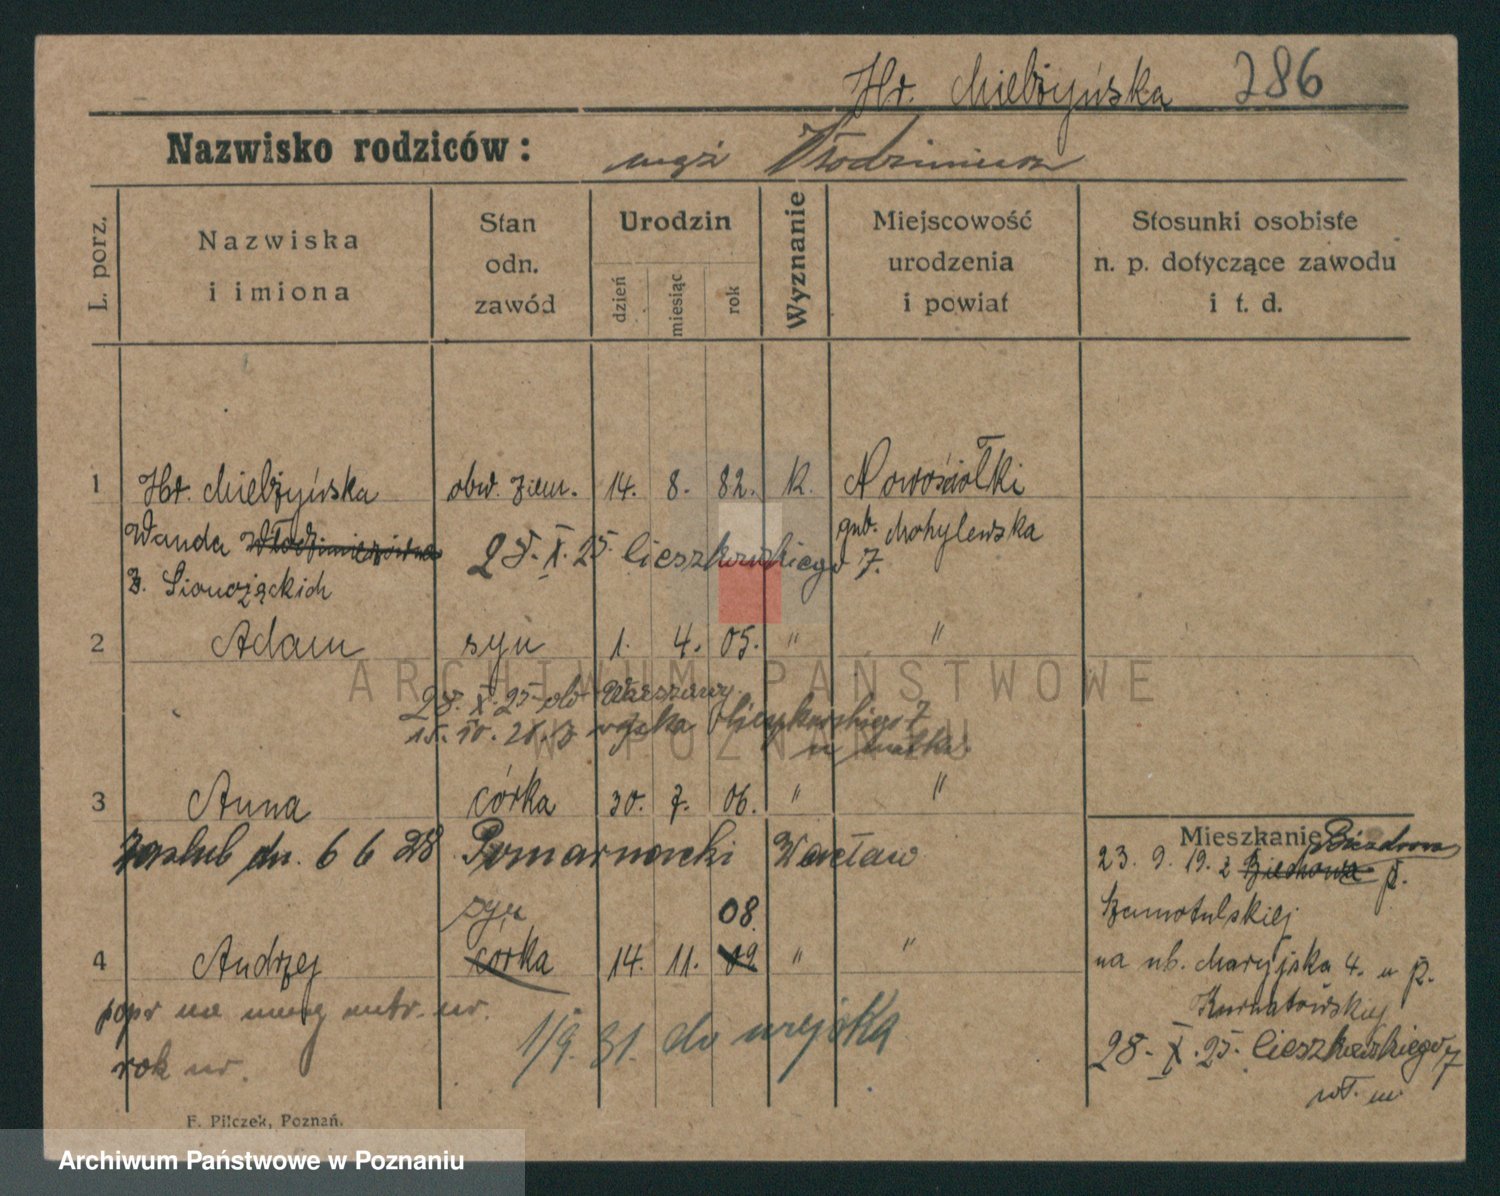 Hr. Mielżyńska 286
Nazwisko rodziców: mąż Włodzimierz
L. porz.
Nazwiska
i imiona
Stan
odn.
zawód
Urodzin
dzień
miesiąc
rok
Wyznanie
Miejscowość
urodzenia
i powiat
Stosunki osobiste
n. p. dotyczące zawodu
i t. d.
1 Hr. Mielżyńska obw. ziem. 14. 8. 82. K. Nowosiołki
Wanda gub. Mohylewska
28. X. 25. Cieszkowskiego 7.
z.
2 Adam syn 1. 4. 05. " "
28. X. 25 Warszawy.
wojska Cieszkowskiego 7
u matki.
3 Anna córka 30. 7. 06. " "
zaślub dn. 6 6 28 Pomarnacki Wacław
syn 08.
4 Andrzej córka 14. 11. 09 " "
popr na
rok ur.
1/9. 31. do wojska
Mieszkanie
23. 9. 19. z p.
Szamotulskiej
na ub. Maryjska 4. u p.
Kurnatowskiej
28. X. 25. Cieszkowskiego 7
F. Pilczek, Poznań.
ARCHIWUM PAŃSTWOWE
W POZNANIU
Archiwum Państwowe w Poznaniu